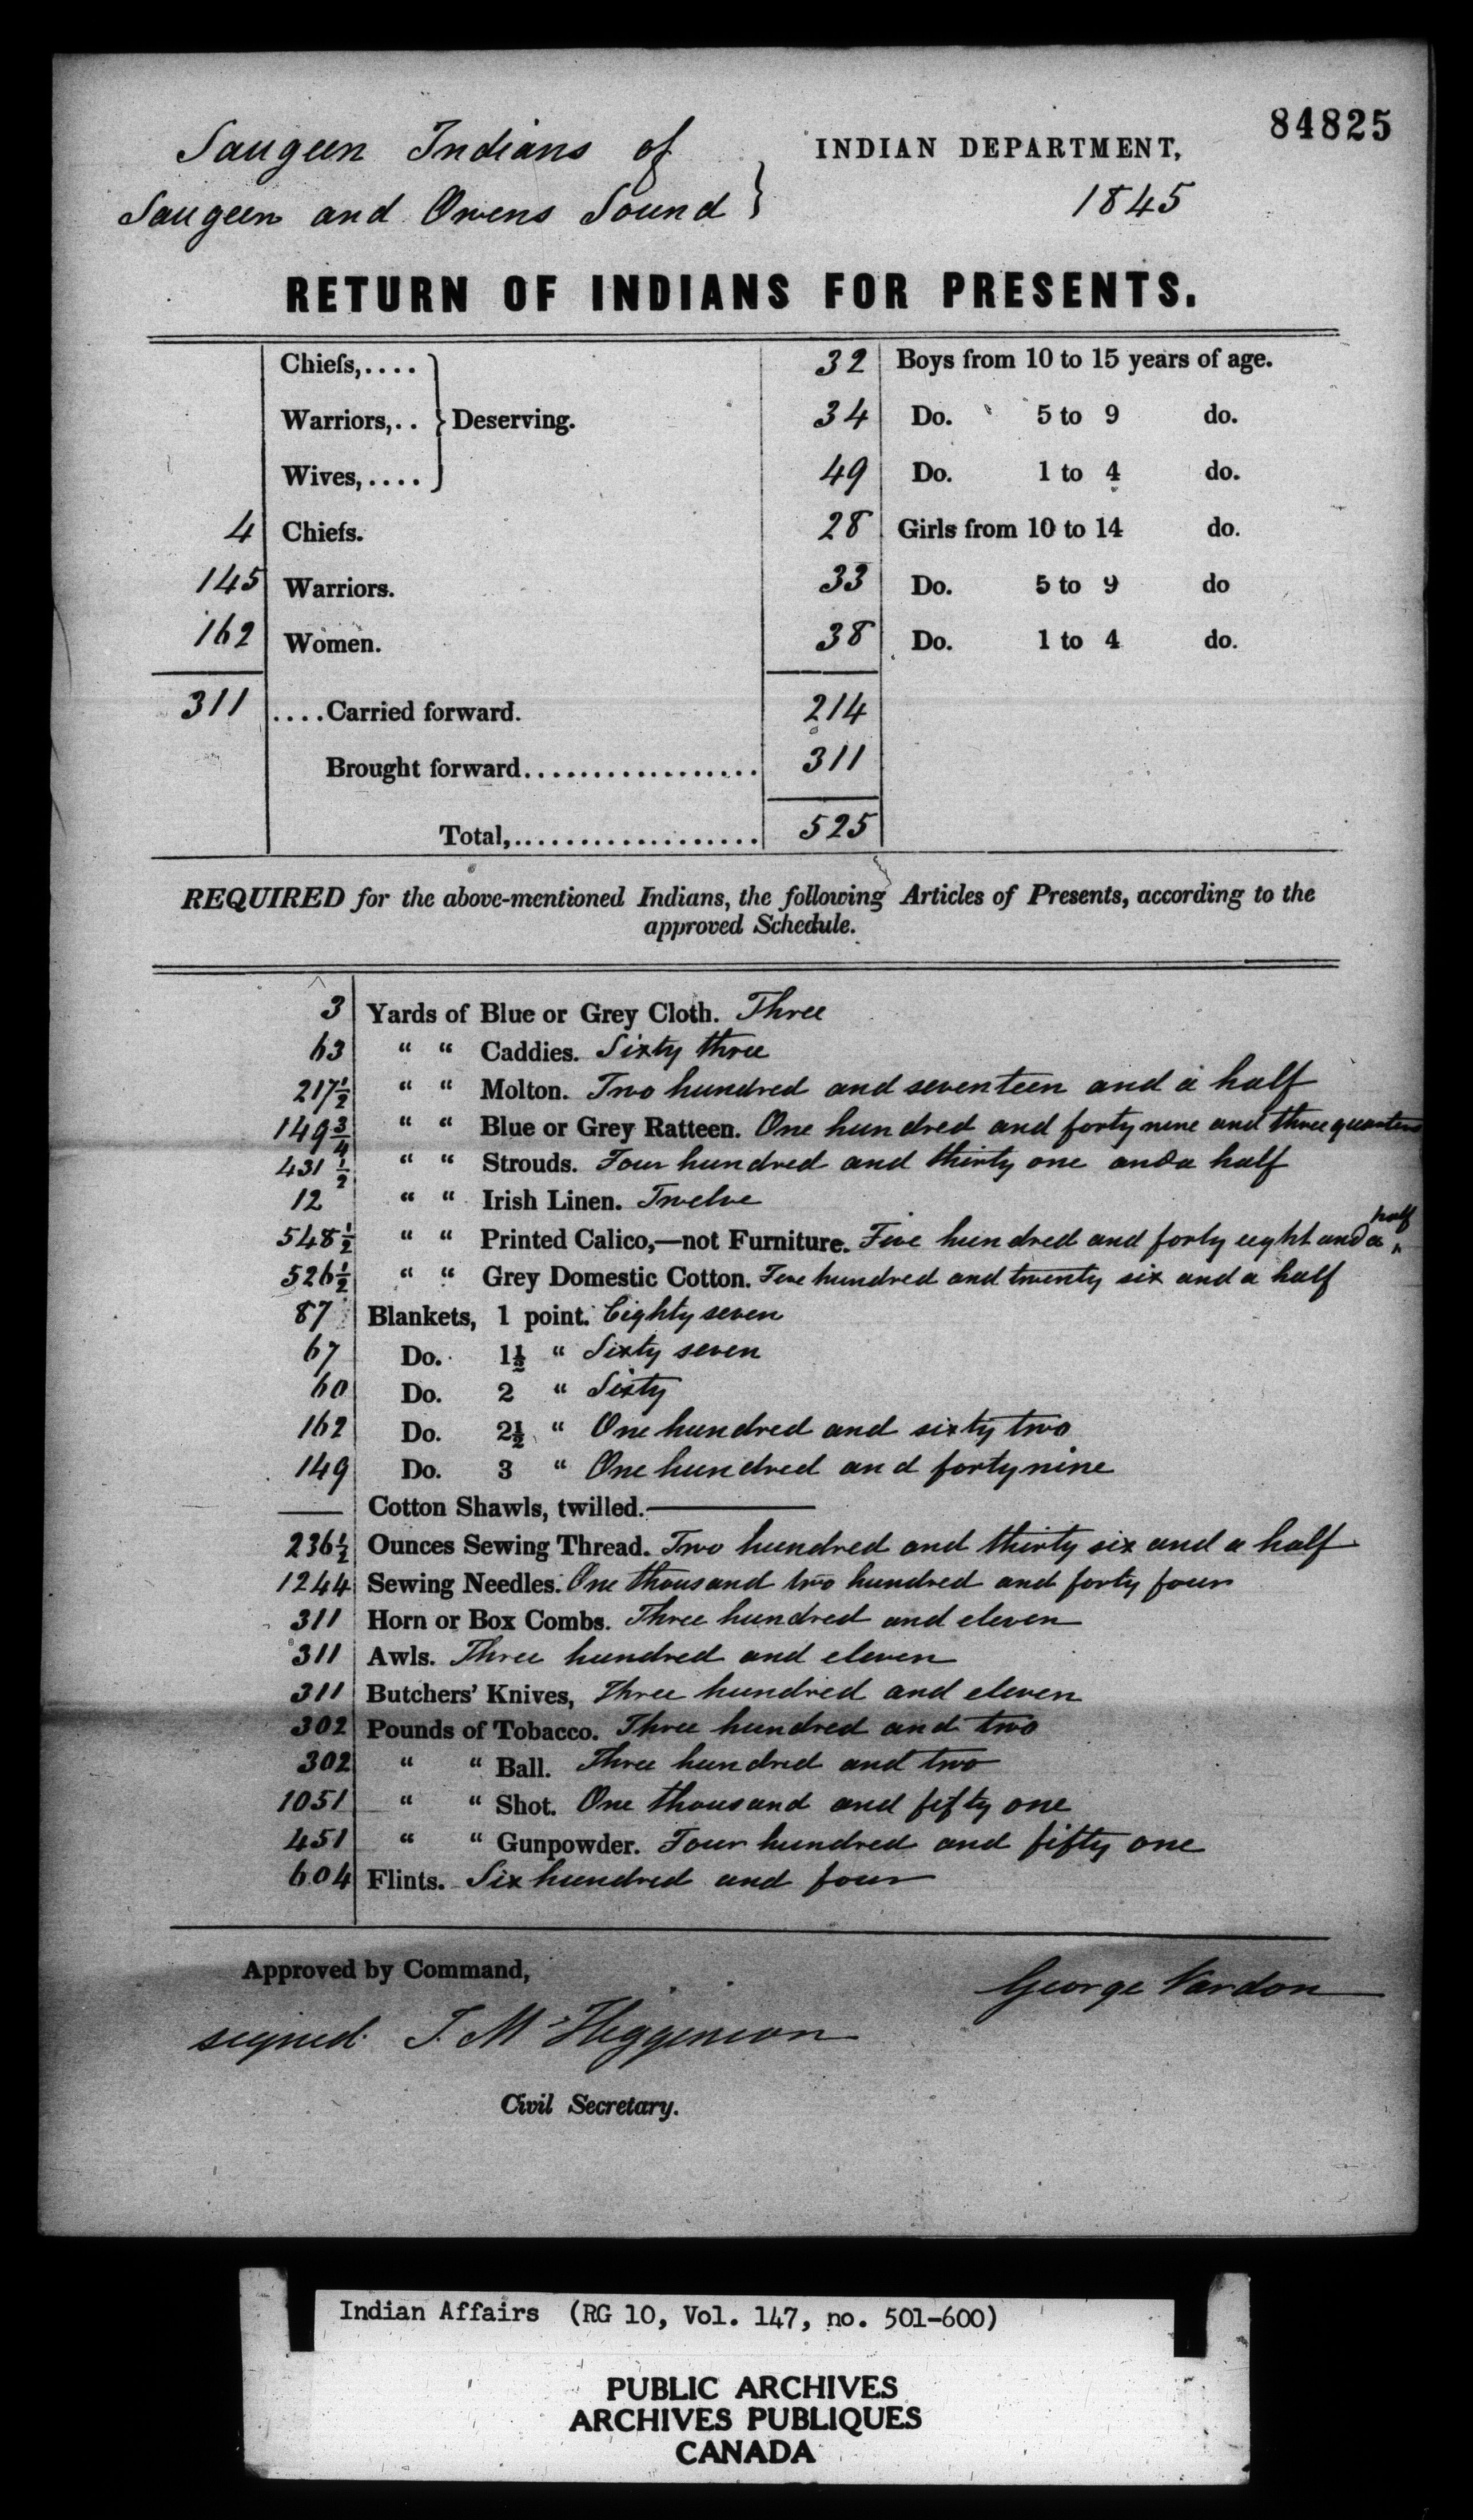 84825
Saugeen Indians of
Saugeen and Owens Sound }
INDIAN DEPARTMENT,
1845
RETURN OF INDIANS FOR PRESENTS.
Chiefs,....
Warriors,.. } Deserving.
Wives,....
4 Chiefs.
145 Warriors.
162 Women.
311 ....Carried forward.
32 Boys from 10 to 15 years of age.
34 Do. 5 to 9 do.
49 Do. 1 to 4 do.
28 Girls from 10 to 14 do.
33 Do. 5 to 9 do
38 Do. 1 to 4 do.
214
Brought forward.................. 311
Total,................... 525
REQUIRED for the above-mentioned Indians, the following Articles of Presents, according to the
approved Schedule.
3 Yards of Blue or Grey Cloth. Three
63 " " Caddies. Sixty three
217½ " " Molton. Two hundred and seventeen and a half
149¾ " " Blue or Grey Ratteen. One hundred and forty nine and three quarters
431½ " " Strouds. Four hundred and thirty one and a half
12 " " Irish Linen. Twelve
548½ " " Printed Calico,—not Furniture. Five hundred and forty eight and a half
526½ " " Grey Domestic Cotton. Five hundred and twenty six and a half
87 Blankets, 1 point. Eighty seven
67 Do. 1½ " Sixty seven
60 Do. 2 " Sixty
162 Do. 2½ " One hundred and sixty two
149 Do. 3 " One hundred and forty nine
— Cotton Shawls, twilled. —
236½ Ounces Sewing Thread. Two hundred and thirty six and a half
1244 Sewing Needles. One thousand two hundred and forty four
311 Horn or Box Combs. Three hundred and eleven
311 Awls. Three hundred and eleven
311 Butchers' Knives, Three hundred and eleven
302 Pounds of Tobacco. Three hundred and two
302 " " Ball. Three hundred and two
1051 " " Shot. One thousand and fifty one
451 " " Gunpowder. Four hundred and fifty one
604 Flints. Six hundred and four
Approved by Command,
George Vardon
signed. J. M. Higginson
Civil Secretary.
Indian Affairs (RG 10, Vol. 147, no. 501-600)
PUBLIC ARCHIVES
ARCHIVES PUBLIQUES
CANADA